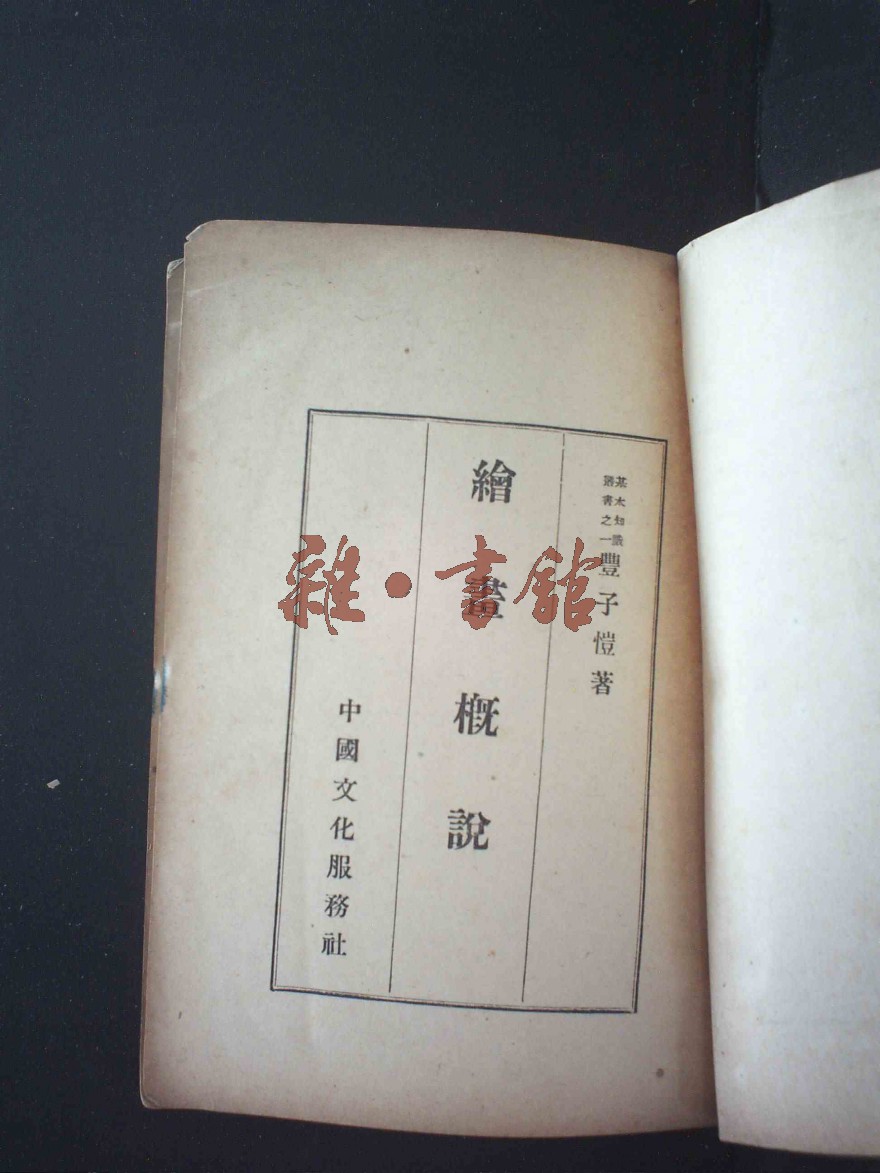 基本知識
叢書之一
豐子愷著
繪畫概說
中國文化服務社
雜·書館